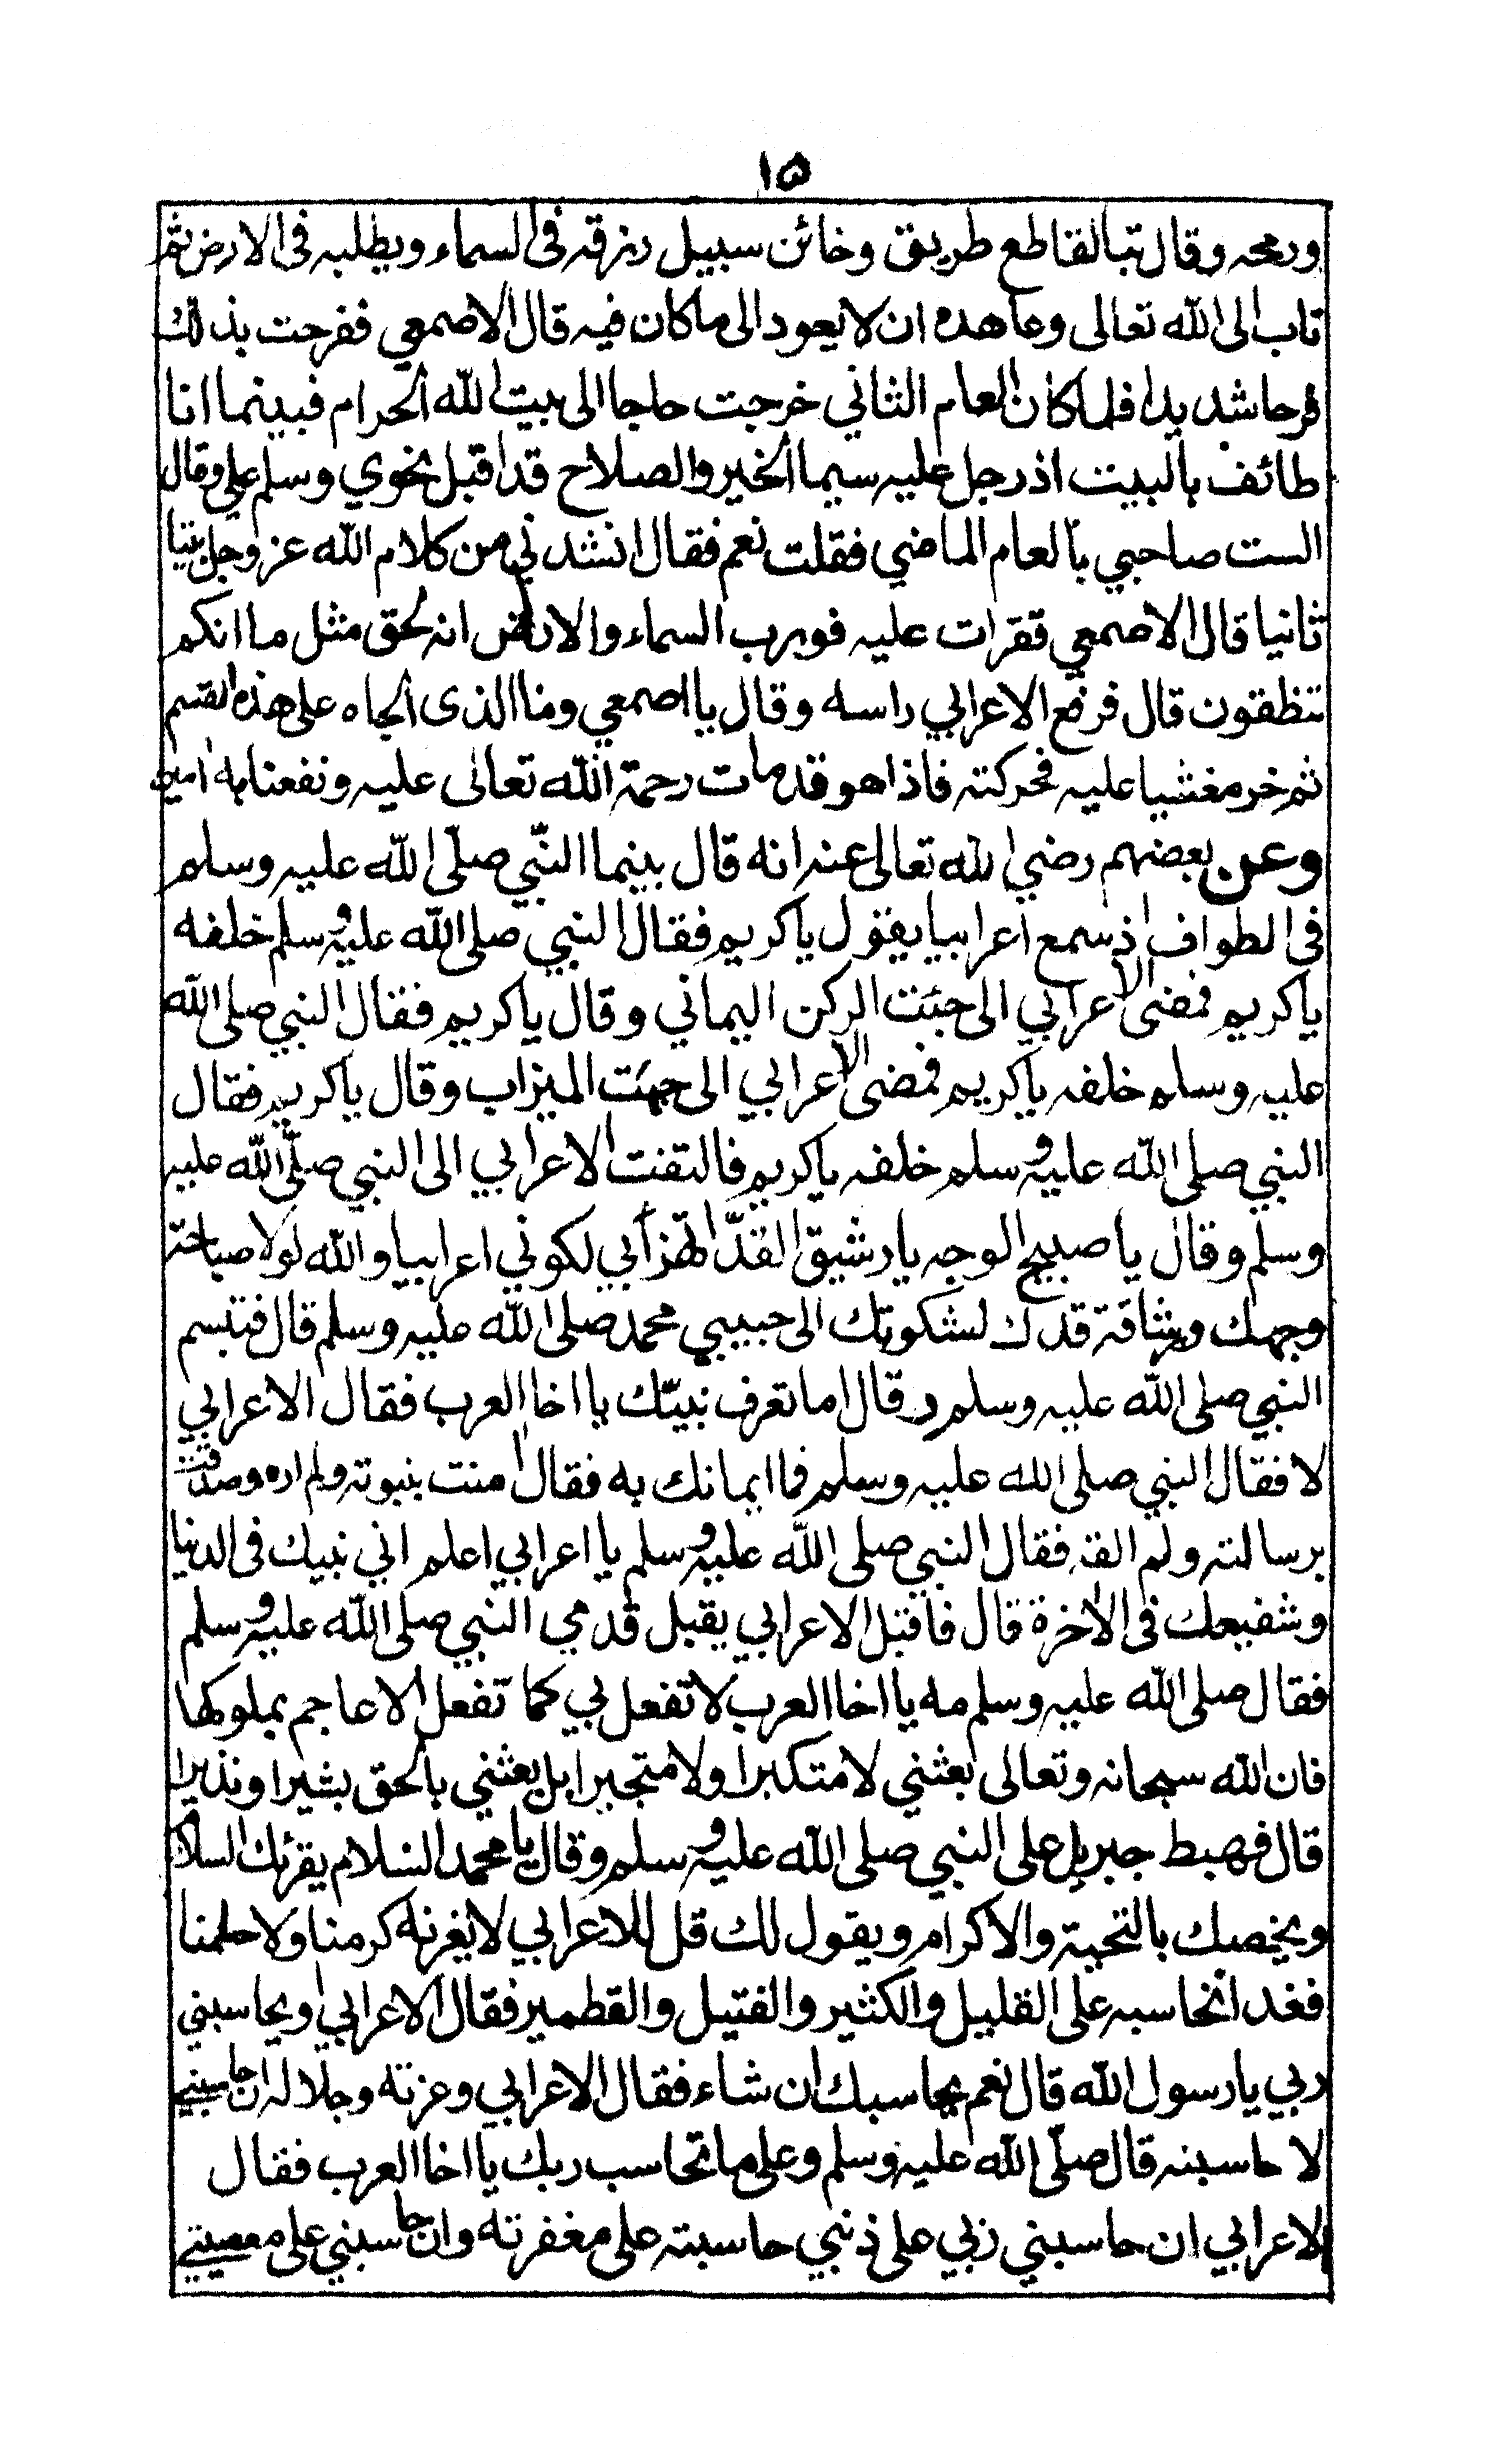 ١٥
ورمحه وقال تبا لقاطع طريق وخائن سبيل رزقه في السماء ويطلبه في الارض ثم
تاب الى الله تعالى وعاهده ان لا يعود الى ما كان فيه قال الاصمعي ففرحت بذلك
فرحا شديدا فلما كان العام الثاني خرجت حاجا الى بيت الله الحرام فبينما انا
طائف بالبيت اذ رجل عليه سيما الخير والصلاح قد اقبل نحوي وسلم علي وقال
الست صاحبي بالعام الماضي فقلت نعم فقال انشدني من كلام الله عز وجل بيتا
ثانيا قال الاصمعي فقرات عليه فورب السماء والارض انه لحق مثل ما انكم
تنطقون قال فرفع الاعرابي راسه وقال يا اصمعي وما الذى الجاه على هذه القسم
ثم خر مغشيا عليه فحركته فاذا هو قد مات رحمة الله تعالى عليه ونفعنا به امين
وعن بعضهم رضي الله تعالى عنه انه قال بينما النبي صلى الله عليه وسلم
في الطواف اذ سمع اعرابيا يقول يا كريم فقال النبي صلى الله عليه وسلم خلفه
يا كريم فمضى الاعرابي الى جهت الركن اليماني وقال يا كريم فقال النبي صلى الله
عليه وسلم خلفه يا كريم فمضى الاعرابي الى جهت الميزاب وقال يا كريم فقال
النبي صلى الله عليه وسلم خلفه يا كريم فالتفت الاعرابي الى النبي صلى الله عليه
وسلم وقال يا صبيح الوجه يا رشيق القدّ اتهزأ بي لكوني اعرابيا والله لولا صباحة
وجهك ورشاقة قدك لشكوتك الى حبيبي محمد صلى الله عليه وسلم قال فتبسم
النبي صلى الله عليه وسلم وقال اما تعرف نبيّك يا اخا العرب فقال الاعرابي
لا فقال النبي صلى الله عليه وسلم فما ايمانك به فقال امنت بنبوته ولم اره وصدقت
برسالته ولم القه فقال النبي صلى الله عليه وسلم يا اعرابي اعلم اني نبيك في الدنيا
وشفيعك في الاخرة قال فاقبل الاعرابي يقبل قدمي النبي صلى الله عليه وسلم
فقال صلى الله عليه وسلم مه يا اخا العرب لا تفعل بي كما تفعل الاعاجم بملوكها
فان الله سبحانه وتعالى بعثني لا متكبرا ولا متجبرا بل بعثني بالحق بشيرا ونذيرا
قال فهبط جبريل على النبي صلى الله عليه وسلم وقال يا محمد السلام يقرئك السلام
ويخصك بالتحية والاكرام ويقول لك قل للاعرابي لا يغرنه كرمنا ولا حلمنا
فغدا نحاسبه على القليل والكثير والفتيل والقطمير فقال الاعرابي او يحاسبني
ربي يا رسول الله قال نعم يحاسبك ان شاء فقال الاعرابي وعزته وجلاله ان حاسبني
لا حاسبنه قال صلّى الله عليه وسلم وعلى ما تحاسب ربك يا اخا العرب فقال
الاعرابي ان حاسبني ربي على ذنبي حاسبته على مغفرته وان حاسبني على معصيتي